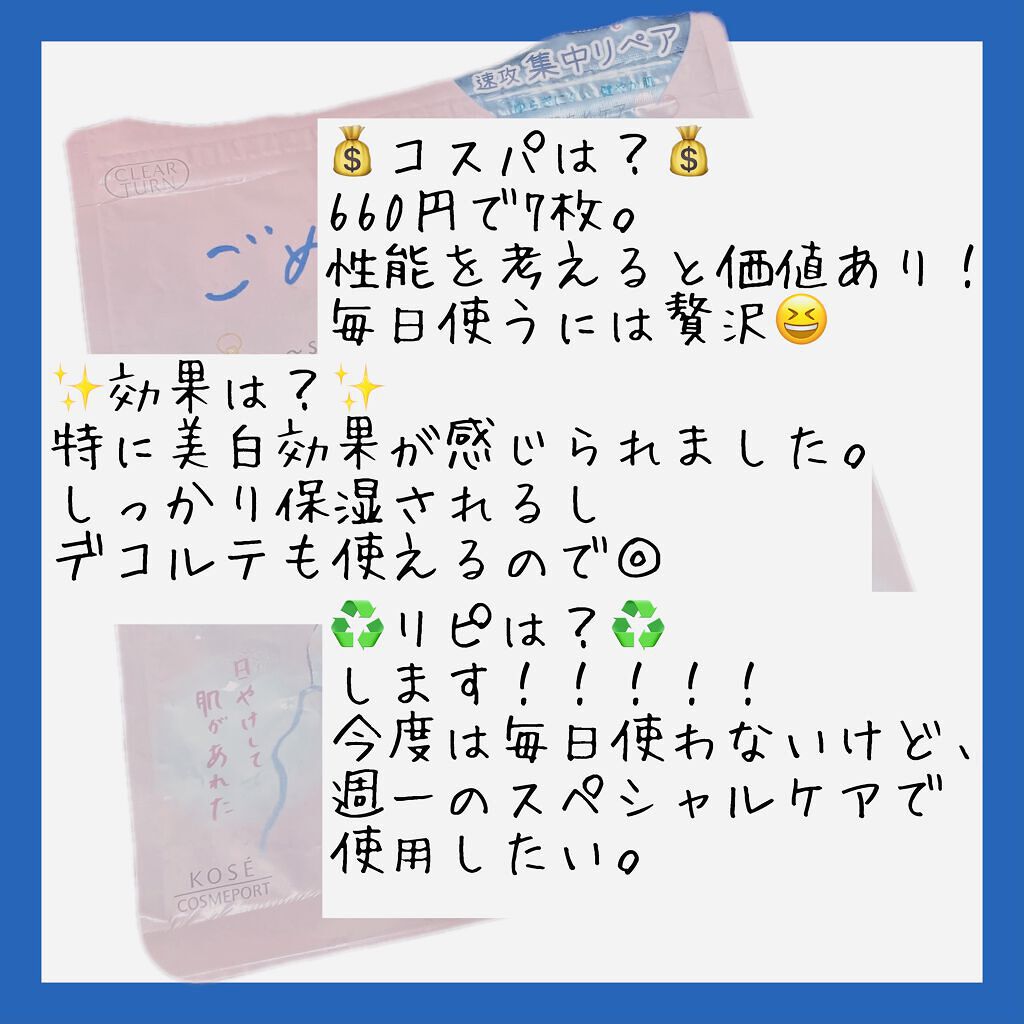 速攻 集中リペア
CLEAR
TURN
ごめ
💰コスパは？💰
660円で7枚。
性能を考えると価値あり！
毎日使うには贅沢😆
✨効果は？✨
特に美白効果が感じられました。
しっかり保湿されるし
デコルテも使えるので◎
♻️リピは？♻️
します！！！！！
今度は毎日使わないけど、
週一のスペシャルケアで
使用したい。
日やけして
肌があれた
KOSÉ
COSMEPORT